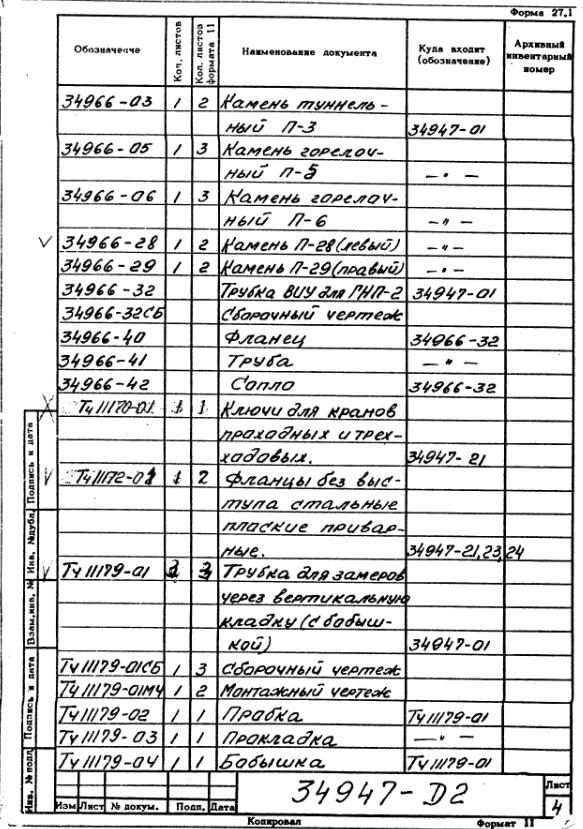 Форма 27.1
Обозначение Кол. листов Кол. листов формата 11 Наименование документа Куда входит (обозначение) Архивный инвентарный номер
34966-03 1 2 Камень туннель-
ный П-3 34947-01
34966-05 1 3 Камень горелоч-
ный П-5 — " —
34966-06 1 3 Камень горелоч-
ный П-6 — " —
34966-28 1 2 Камень П-28 (левый) — " —
34966-29 1 2 Камень П-29 (правый) — " —
34966-32 Трубка ВИУ для ГНП-2 34947-01
34966-32СБ Сборочный чертеж
34966-40 Фланец 34966-32
34966-41 Труба — " —
34966-42 Сопло 34966-32
1 1 Ключи для кранов
проходных и трех-
ходовых. 34947-21
2 Фланцы без выс-
тупа стальные
плоские привар-
ные. 34947-21,23,24
Ту 11179-01 Трубка для замеров
через вертикальную
кладку (с бобыш-
кой) 34947-01
Ту 11179-01СБ 1 3 Сборочный чертеж
Ту 11179-01МЧ 1 2 Монтажный чертеж
Ту 11179-02 1 1 Пробка Ту 11179-01
Ту 11179-03 1 1 Прокладка — " —
Ту 11179-04 1 1 Бобышка Ту 11179-01
Подпись и дата
Инв. № дубл.
Взам. инв. №
Подпись и дата
Инв. № подл.
Изм Лист № докум. Подп. Дата
34947-D2
Лист
4
Копировал Формат 11